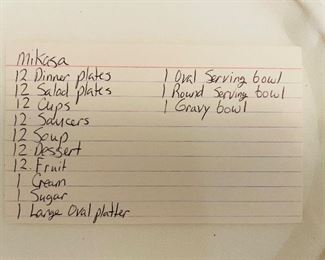 Mikasa
12 Dinner plates
12 Salad plates
12 Cups
12 Saucers
12 Soup
12 Dessert
12 Fruit
1 Cream
1 Sugar
1 Large Oval platter
1 Oval Serving bowl
1 Round Serving bowl
1 Gravy bowl